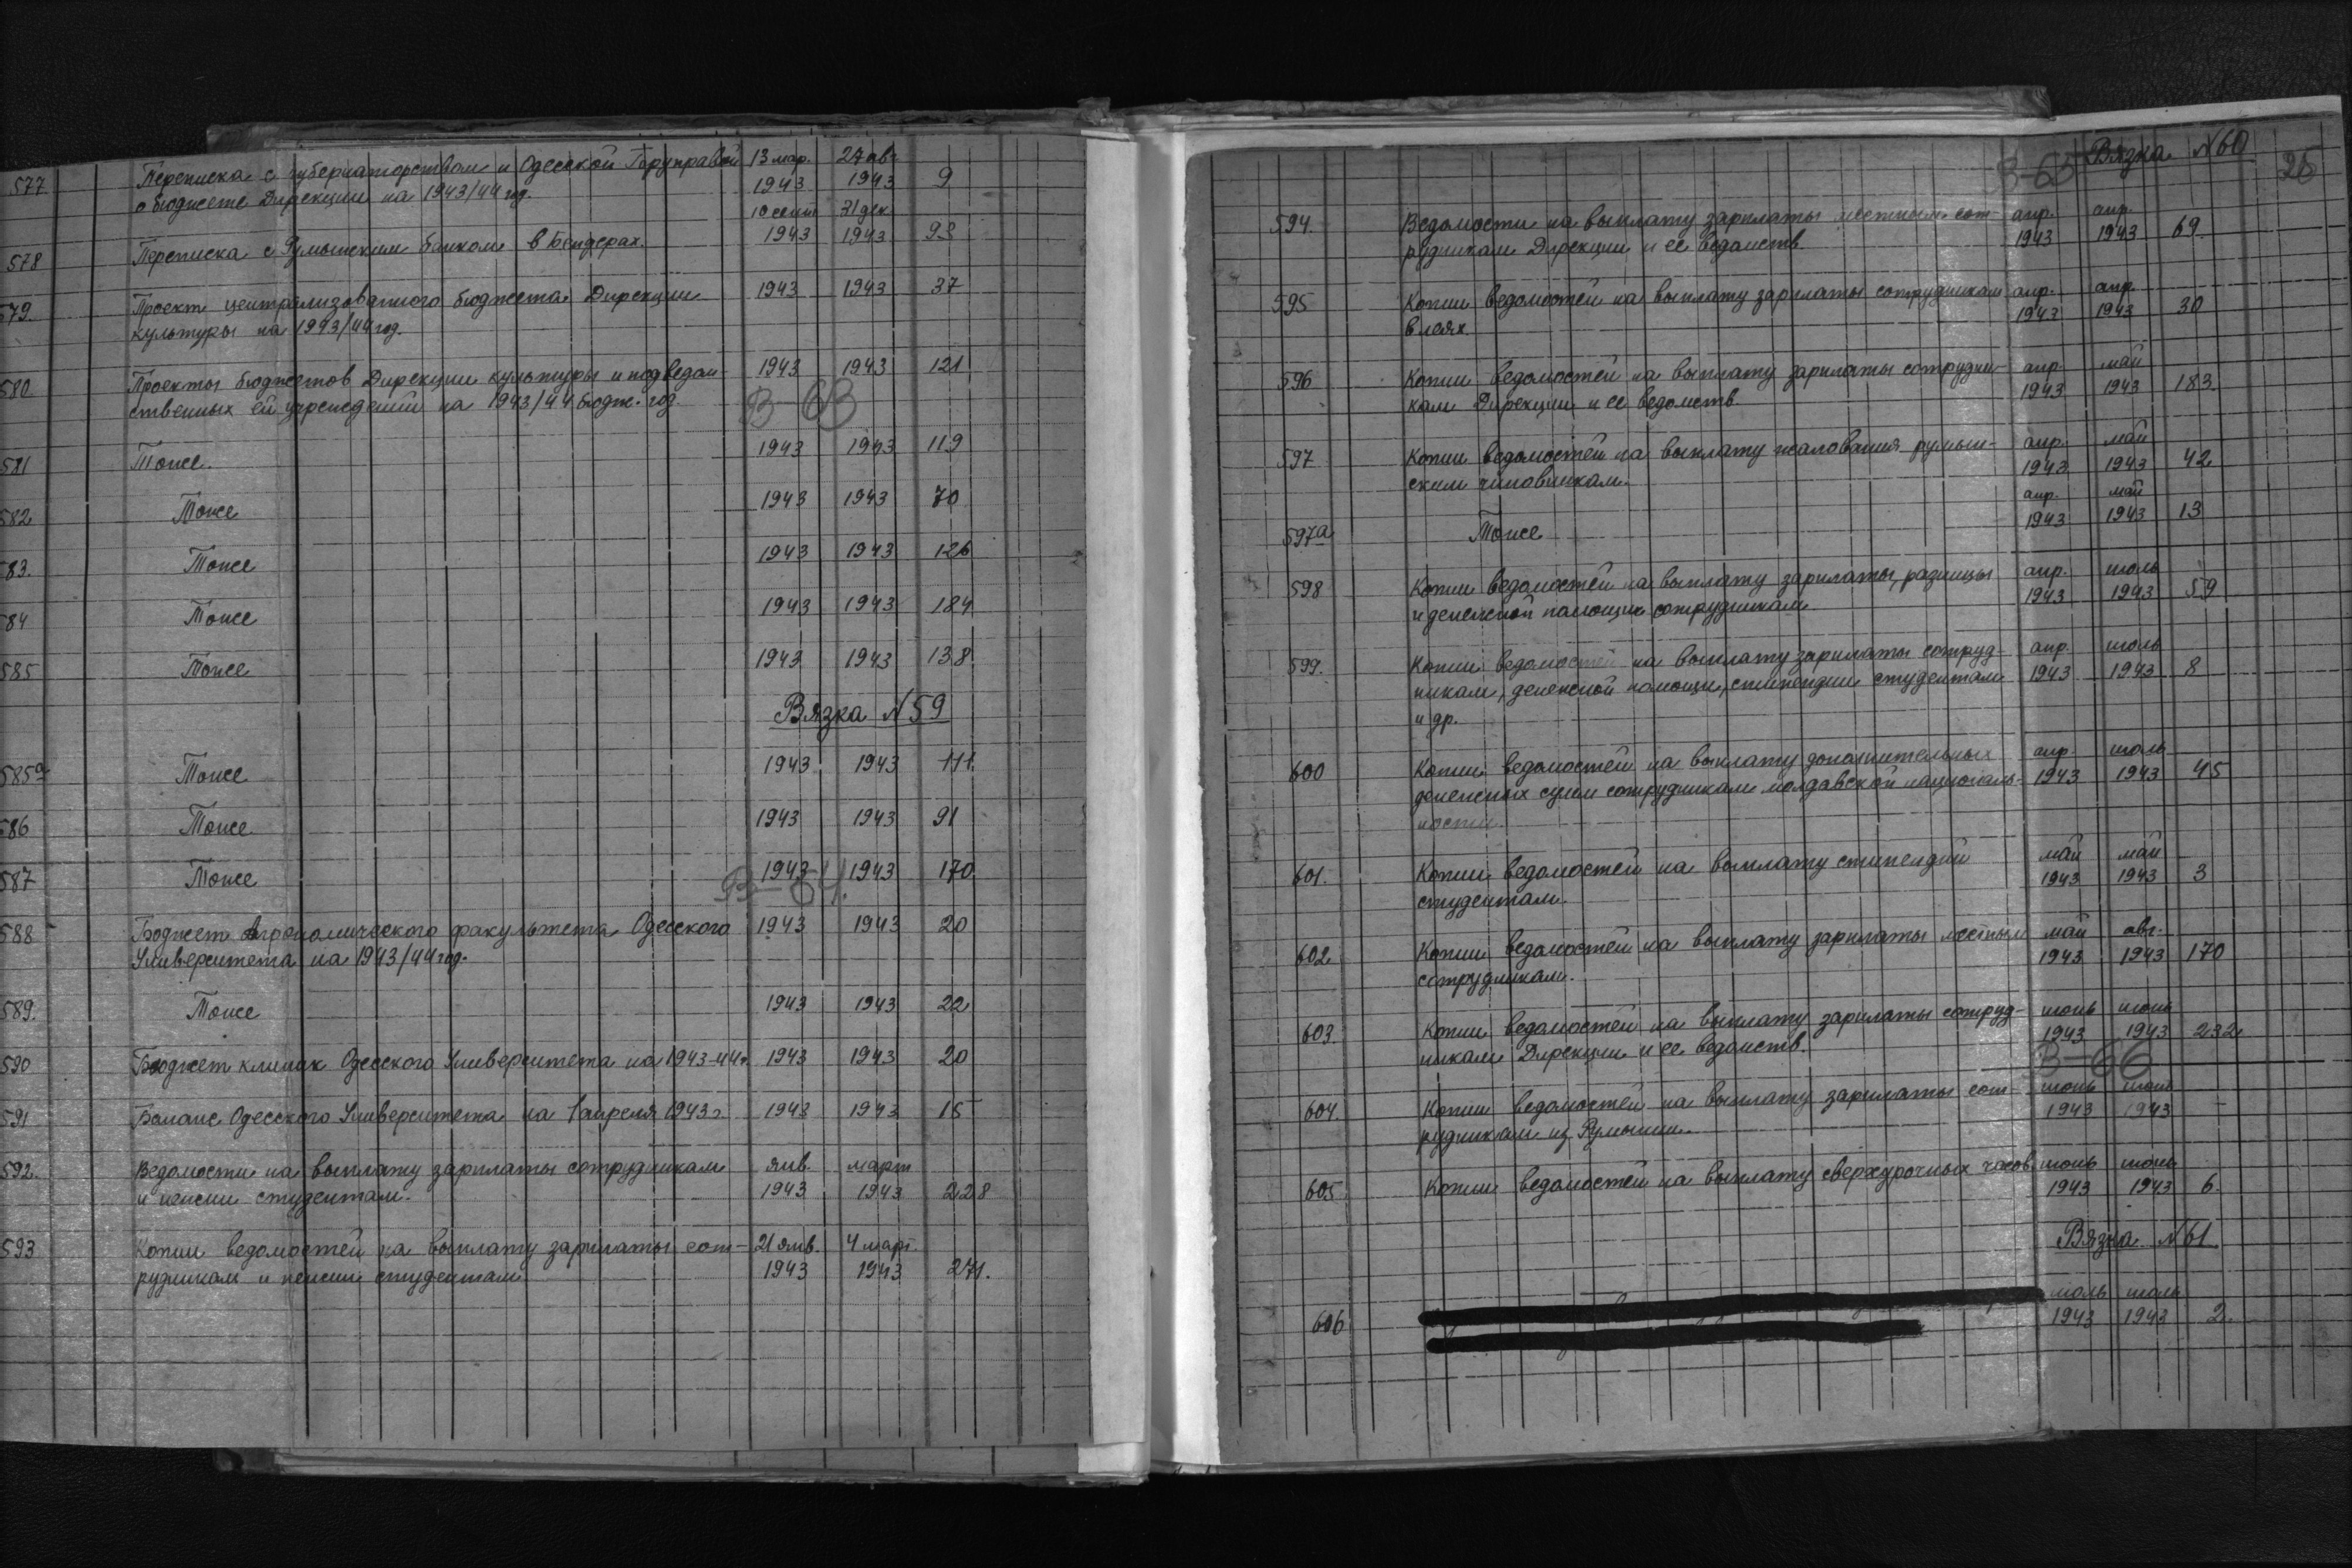 577 Переписка с губернаторством и Одесской Горуправой 13 мар. 27 авг.
о бюджете Дирекции на 1943/44 год. 1943 1943 9
10 сент 31 дек
578 Переписка с Румынским банком в Бендерах. 1943 1943 93
579. Проект централизованного бюджета Дирекции 1943 1943 37
культуры на 1943/44 год.
580 Проекты бюджетов Дирекции культуры и подведом- 1943 1943 121
ственных ей учреждений на 1943/44 бюдж. год. В-63
581 Тоже. 1943 1943 119
582 Тоже 1943 1943 70
583. Тоже 1943 1943 126
584 Тоже 1943 1943 184
585 Тоже 1943 1943 138
Вязка N 59
585а Тоже 1943 1943 111
586 Тоже 1943 1943 91
587 Тоже 1943 1943 170
В-64.
588 Бюджет Агрономического факультета Одесского 1943 1943 20
Университета на 1943/44 год.
589. Тоже 1943 1943 22
590 Бюджет клиник Одесского Университета на 1943-44 г. 1943 1943 20
591 Баланс Одесского Университета на 1 апреля 1943 г. 1943 1943 15
592. Ведомости на выплату зарплаты сотрудникам янв. март
и пенсии студентам. 1943 1943 228
593 Копии ведомостей на выплату зарплаты сот- 21 янв. 4 март.
рудникам и пенсии студентам 1943 1943 271.
В-65 Вязка N 60 26
594. Ведомости на выплату зарплаты местным сот- апр. апр.
рудникам Дирекции и ее ведомств. 1943 1943 69
595 Копии ведомостей на выплату зарплаты сотрудникам апр. апр.
в леях. 1943 1943 30
596 Копии ведомостей на выплату зарплаты сотрудни- апр. май
кам Дирекции и ее ведомств 1943 1943 183
597 Копии ведомостей на выплату жалования румын- апр. май
ским чиновникам. 1943 1943 42
апр. май
597а Тоже 1943 1943 13
598 Копии ведомостей на выплату зарплаты, разницы апр. июль
и денежной помощи сотрудникам 1943 1943 59
599. Копии ведомостей на выплату зарплаты сотруд- апр. июль
никам, денежной помощи, стипендии студентам 1943 1943 8
и др.
600 Копии ведомостей на выплату дополнительных апр. июль
денежных сумм сотрудникам молдавской националь- 1943 1943 45
ности.
601. Копии ведомостей на выплату стипендий май май
студентам. 1943 1943 3
602 Копии ведомостей на выплату зарплаты местным май авг.
сотрудникам. 1943 1943 170
603. Копии ведомостей на выплату зарплаты сотруд- июнь июнь
никам Дирекции и ее ведомств. 1943 1943 232
В-66
604. Копии ведомостей на выплату зарплаты сот- июнь июнь
рудникам из Румынии. 1943 1943 -
605 Копии ведомостей на выплату сверхурочных часов июнь июнь
1943 1943 6.
Вязка N 61
июль июль
606 1943 1943 2.